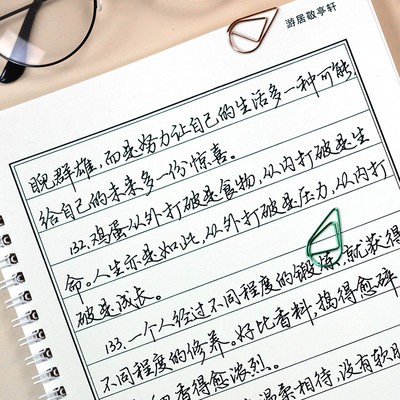 游居敬亭轩
睨群雄,而是努力让自己的生活多一种可能,
给自己的未来多一份惊喜。
132.鸡蛋从外打破是食物,从内打破是生
命。人生亦是如此,从外打破是压力,从内打
破是成长。
133.一个人经过不同程度的锻炼,就获得
不同程度的修养。好比香料,捣得愈碎
得愈浓烈。
温柔相待,没有软肋